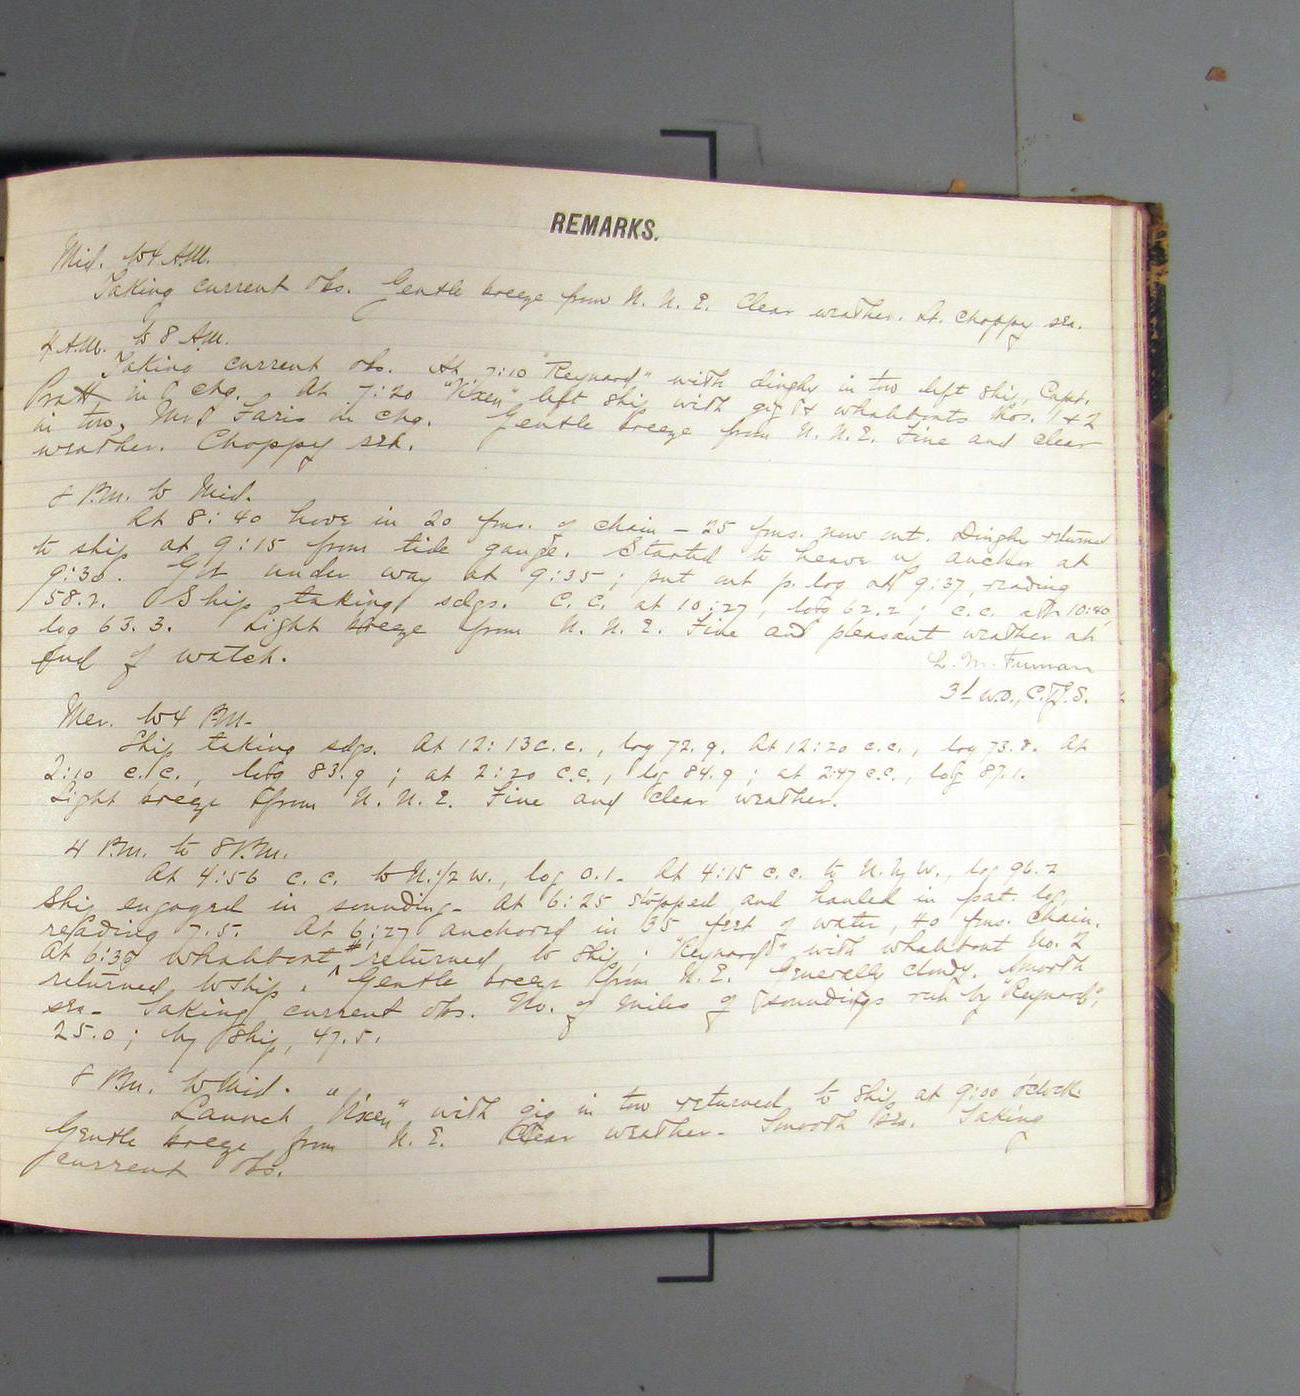 REMARKS.
Mid. to 4 A.M.
Taking current obs. Gentle breeze from N. N. E. Clear weather. Lt. choppy sea.
4 A.M. to 8 A.M.
Taking current obs. At 7:10 "Reynard" with dinghy in tow left ship, Capt.
Pratt in chg. At 7:20 "Vixen" left ship with gig & whaleboats Nos. 1 & 2
in tow, Mr. Faris in chg. Gentle breeze from N. N. E. Fine and clear
weather. Choppy sea.
8 P.M. to Mid.
At 8:40 hove in 20 fms. of chain - 25 fms. now out. Dinghy returned
to ship at 9:15 from tide gauge. Started to heave up anchor at
9:30. Got under way at 9:35; put out p. log at 9:37, reading
58.2. Ship taking sdgs. C.C. at 10:27, log 62.2; c.c. at 10:40,
log 63.3. Light breeze from N. N. E. Fine and pleasant weather at
end of watch.
L. M. Furman
3d W.O., C.&G.S.
Mer. to 4 P.M.
Ship taking sdgs. At 12:13 c.c., log 72.9. At 12:20 c.c., log 73.8. At
2:10 c.c., log 83.9; at 2:20 c.c., log 84.9; at 2:47 c.c., log 87.1.
Light breeze from N. N. E. Fine and clear weather.
4 P.M. to 8 P.M.
At 4:56 c.c. to N. 1/2 W., log 0.1. At 4:15 c.c. to N. by W., log 96.2
Ship engaged in sounding. At 6:25 stopped and hauled in pat. log,
reading 7.5. At 6:27 anchored in 35 feet of water, 40 fms. chain.
At 6:30 whaleboat # returned to ship; "Reynard" with whaleboat No. 2
returned to ship. Gentle breeze from N. E. Generally cloudy. Smooth
sea. Taking current obs. No. of miles of soundings run by "Reynard",
25.0; by ship, 47.5.
8 P.M. to Mid.
Launch "Vixen" with gig in tow returned to ship at 9:00 o'clock.
Gentle breeze from N. E. Clear weather. Smooth sea. Taking
current obs.